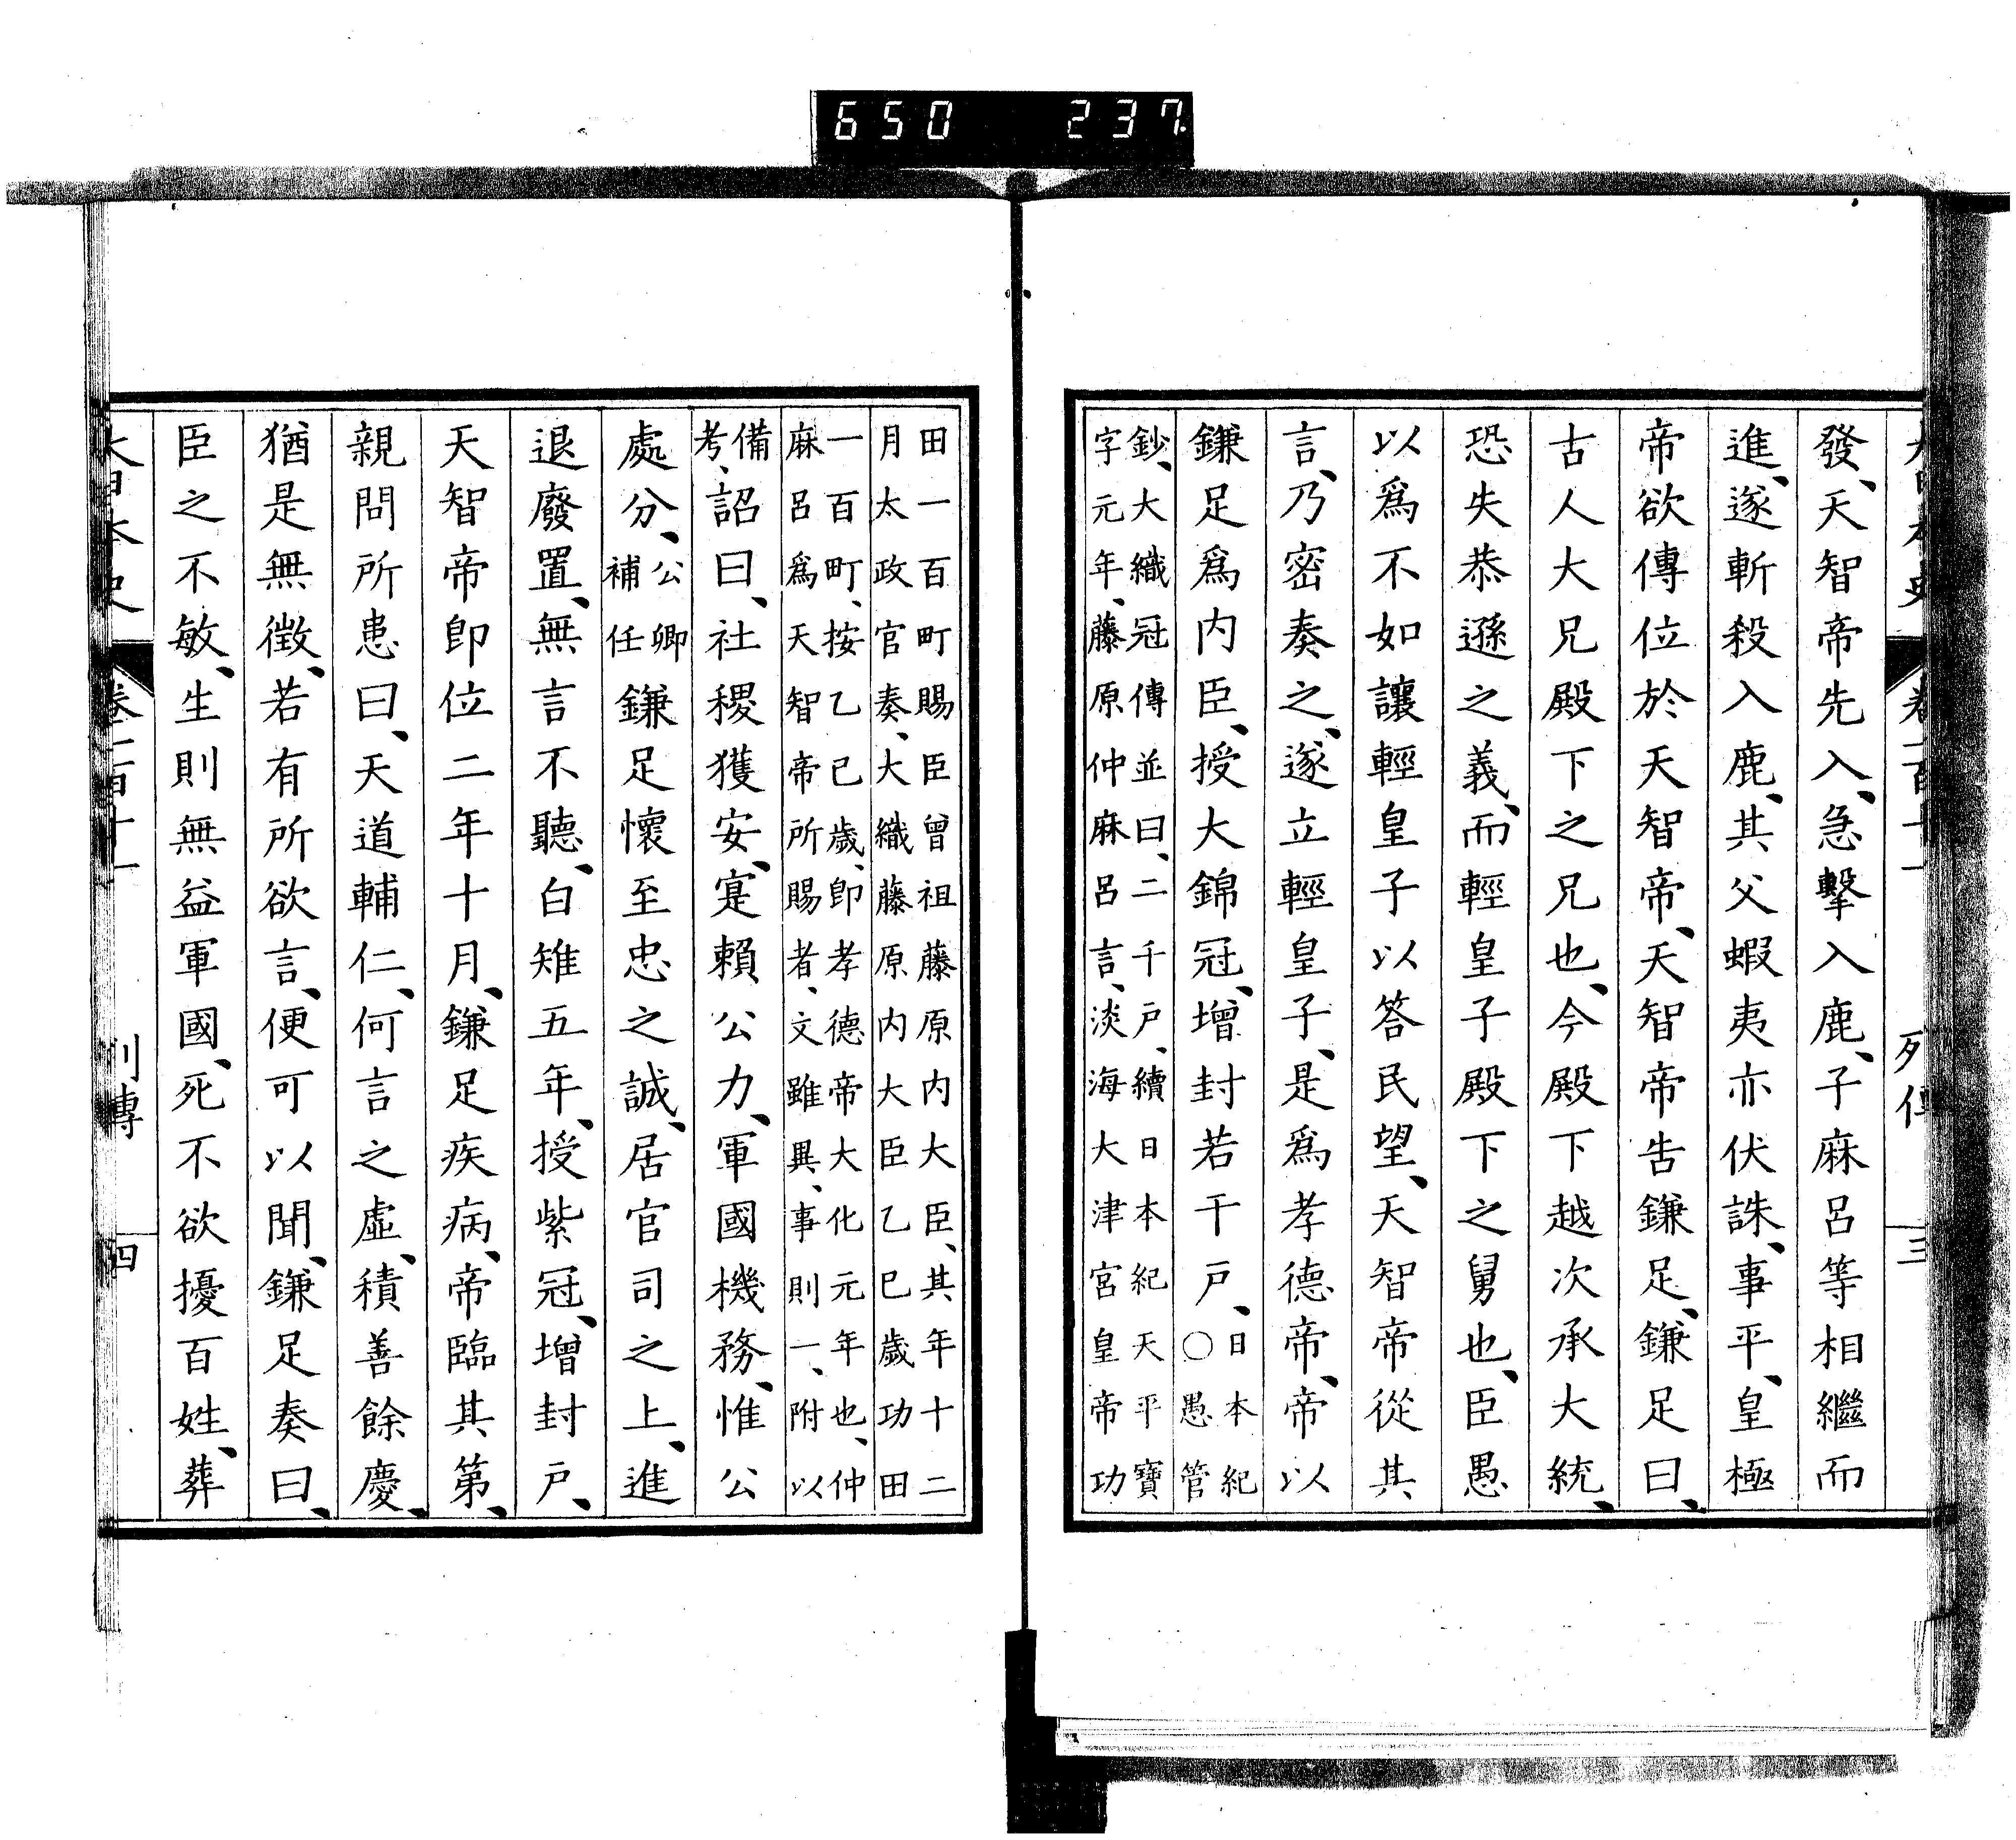 650 237
大日本史 卷一百十一 列傳 三
發、天智帝先入、急擊入鹿、子麻呂等相繼而
進、遂斬殺入鹿、其父蝦夷亦伏誅、事平、皇極
帝欲傳位於天智帝、天智帝告鎌足、鎌足曰、
古人大兄殿下之兄也、今殿下越次承大統、
恐失恭遜之義、而輕皇子殿下之舅也、臣愚
以爲不如讓輕皇子以答民望、天智帝從其
言、乃密奏之、遂立輕皇子、是爲孝德帝、帝以
鎌足爲内臣、授大錦冠、增封若干戸、日本紀
○愚管
鈔、大織冠傳並曰、二千戸、續日本紀天平寶
字元年、藤原仲麻呂言、淡海大津宮皇帝功
田一百町賜臣曾祖藤原内大臣、其年十二
月太政官奏、大織藤原内大臣乙巳歲功田
一百町、按乙巳歲、卽孝德帝大化元年也、仲
麻呂爲天智帝所賜者、文雖異、事則一、附以
備
考、詔曰、社稷獲安、寔賴公力、軍國機務、惟公
處分、公卿
補任鎌足懷至忠之誠、居官司之上、進
退廢置、無言不聽、白雉五年、授紫冠、增封戸、
天智帝卽位二年十月、鎌足疾病、帝臨其第、
親問所患曰、天道輔仁、何言之虛、積善餘慶、
猶是無徵、若有所欲言、便可以聞、鎌足奏曰、
臣之不敏、生則無益軍國、死不欲擾百姓、葬
大日本史 卷一百十一 列傳 四